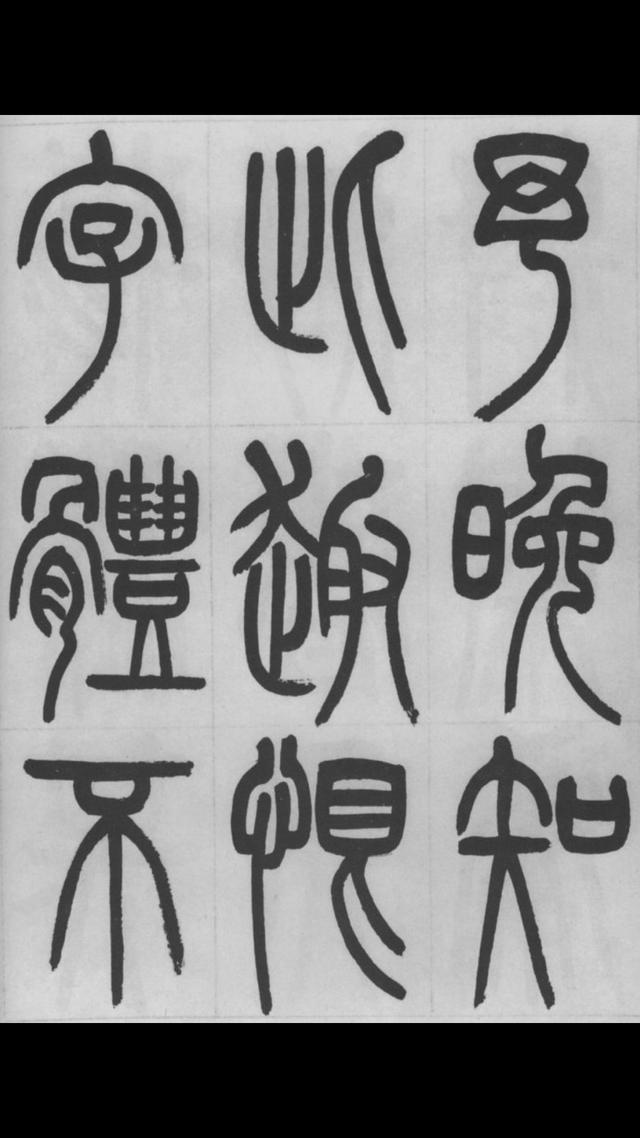 予晚知
此趣恨
字體不